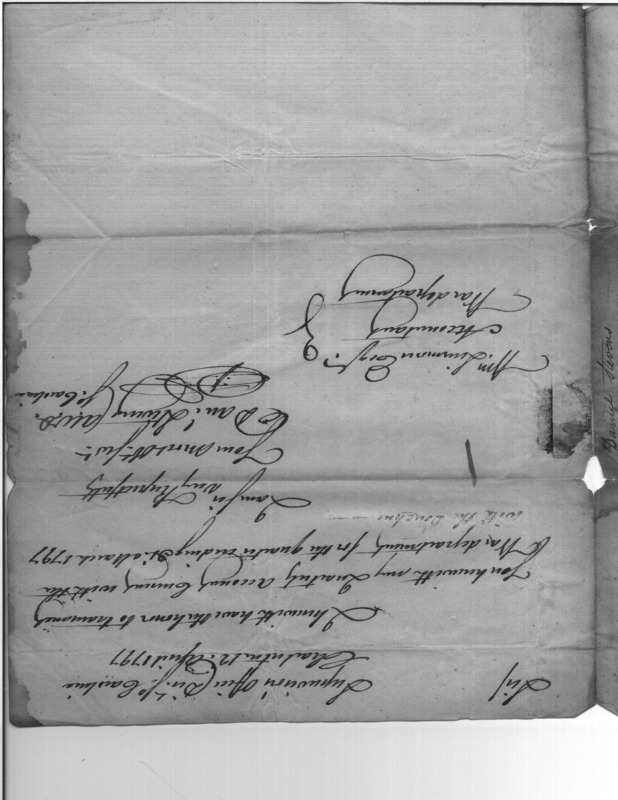 Sir/
Supervisor's Office Dist. So. Carolina
Charleston 12. April 1797
I herewith have the honor to transmit
You herewith my Quarterly Account Current with the
War department, for the quarter ending 31st March 1797
with the vouchers
I am Sir
Very Respectfully
Your most Ob. Servt.
Danl. Stevens
S. Carolina
Wm. Simmons Esqr.
Accountant
War department
Daniel Stevens